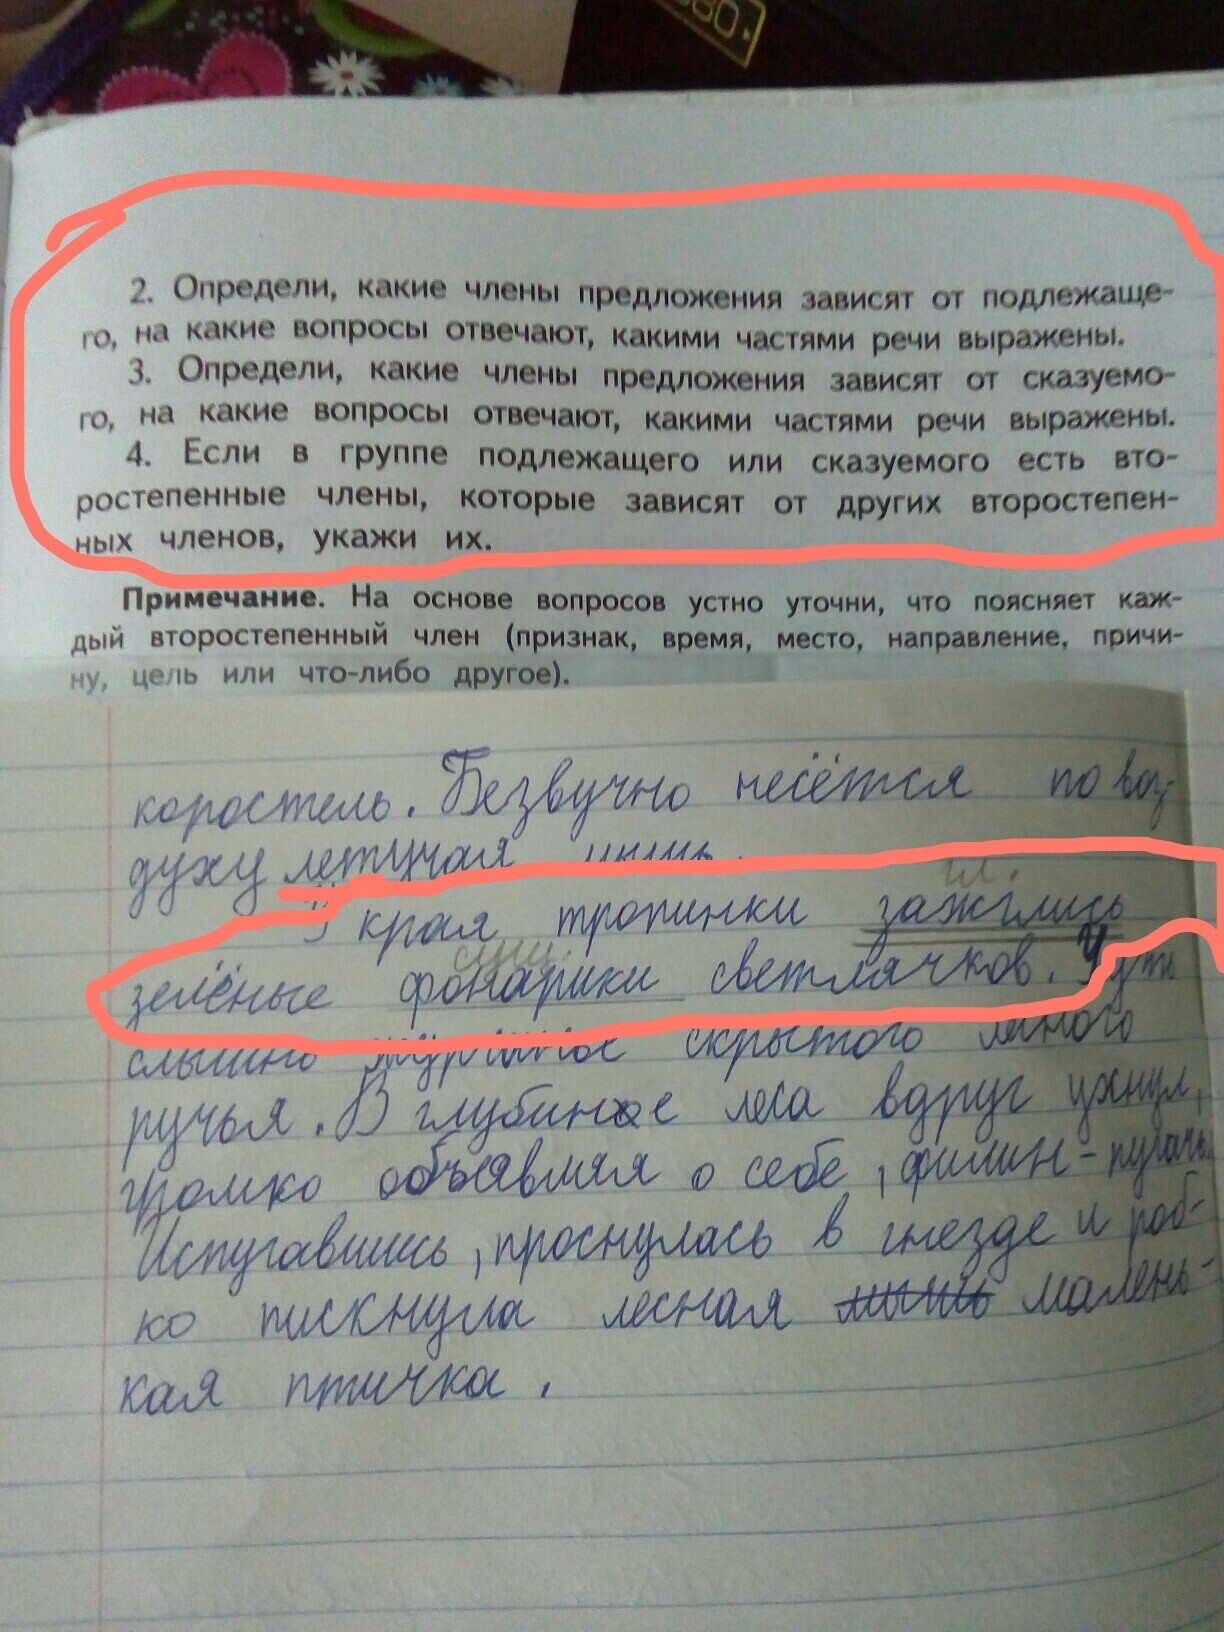 080
2. Определи, какие члены предложения зависят от подлежаще-
го, на какие вопросы отвечают, какими частями речи выражены.
3. Определи, какие члены предложения зависят от сказуемо-
го, на какие вопросы отвечают, какими частями речи выражены.
4. Если в группе подлежащего или сказуемого есть вто-
ростепенные члены, которые зависят от других второстепен-
ных членов, укажи их.
Примечание. На основе вопросов устно уточни, что поясняет каж-
дый второстепенный член (признак, время, место, направление, причи-
ну, цель или что-либо другое).
коростель. Безвучно несётся по воз-
духу летучая мышь.
гл.
У края тропинки зажглись
сущ.
зелёные фонарики светлячков. Чуть
слышно журчание скрытого лесного
ручья. В глубине леса вдруг ухнул,
громко объявляя о себе, филин-пугачь.
Испугавшись, проснулась в гнезде и роб-
ко пискнула лесная мышь мались-
кая птичка.